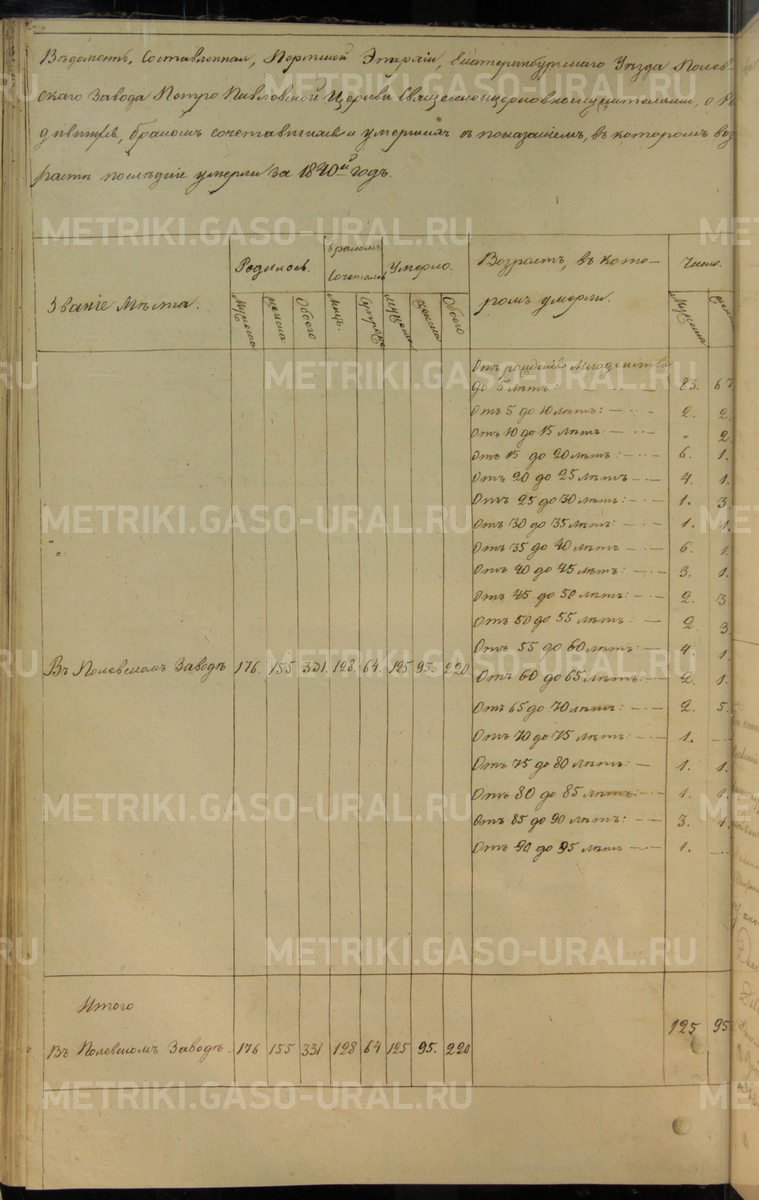 Вѣдомость, Составленная, Пермской Эпархіи, Екатеринбургскаго Уѣзда Полев-
скаго Завода Петро Павловской Церкви Священноцерковнослужителями, о Ро
дившихся, бракомъ сочетавшихся и умершихъ съ показаніемъ, въ которомъ воз
растѣ послѣдніе умерли за 1840й годъ.
METRIKI.GASO-URAL.RU
Званіе Мѣста.
Родилось.
Бракомъ Сочеталось
Умерло.
Возрастъ, въ кото-
ромъ умерли.
Число.
Мужеска
женска
Обоего
Супруж
Мужеска
женска
Обоего
Мужеска
Отъ рожденія Младенства
до 5 лѣтъ: 83. 67
Отъ 5 до 10 лѣтъ: — 2. 2.
Отъ 10 до 15 лѣтъ „ 2
Отъ 15 до 20 лѣтъ: — 6. 1.
Отъ 20 до 25 лѣтъ — 4. 1.
Отъ 25 до 30 лѣтъ: — 1. 3.
Отъ 30 до 35 лѣтъ: — 1. 1.
Отъ 35 до 40 лѣтъ — 6. 1.
Отъ 40 до 45 лѣтъ: — 3. 1.
Отъ 45 до 50 лѣтъ: — 2. 3.
Отъ 50 до 55 лѣтъ: — 2. 3.
Отъ 55 до 60 лѣтъ: — 4. 1.
Въ Полевскомъ Заводѣ 176. 155 331. 128 64. 125 95. 220.
Отъ 60 до 65 лѣтъ: — 2. 1.
Отъ 65 до 70 лѣтъ: — 2. 5.
Отъ 70 до 75 лѣтъ: — 1. —
Отъ 75 до 80 лѣтъ: — 1. 1.
Отъ 80 до 85 лѣтъ: — 1. 1.
Отъ 85 до 90 лѣтъ: — 3. 1.
Отъ 90 до 95 лѣтъ — 1. —
Итого
Въ Полевскомъ Заводѣ. 176 155 331 128 64 125 95. 220
125 95